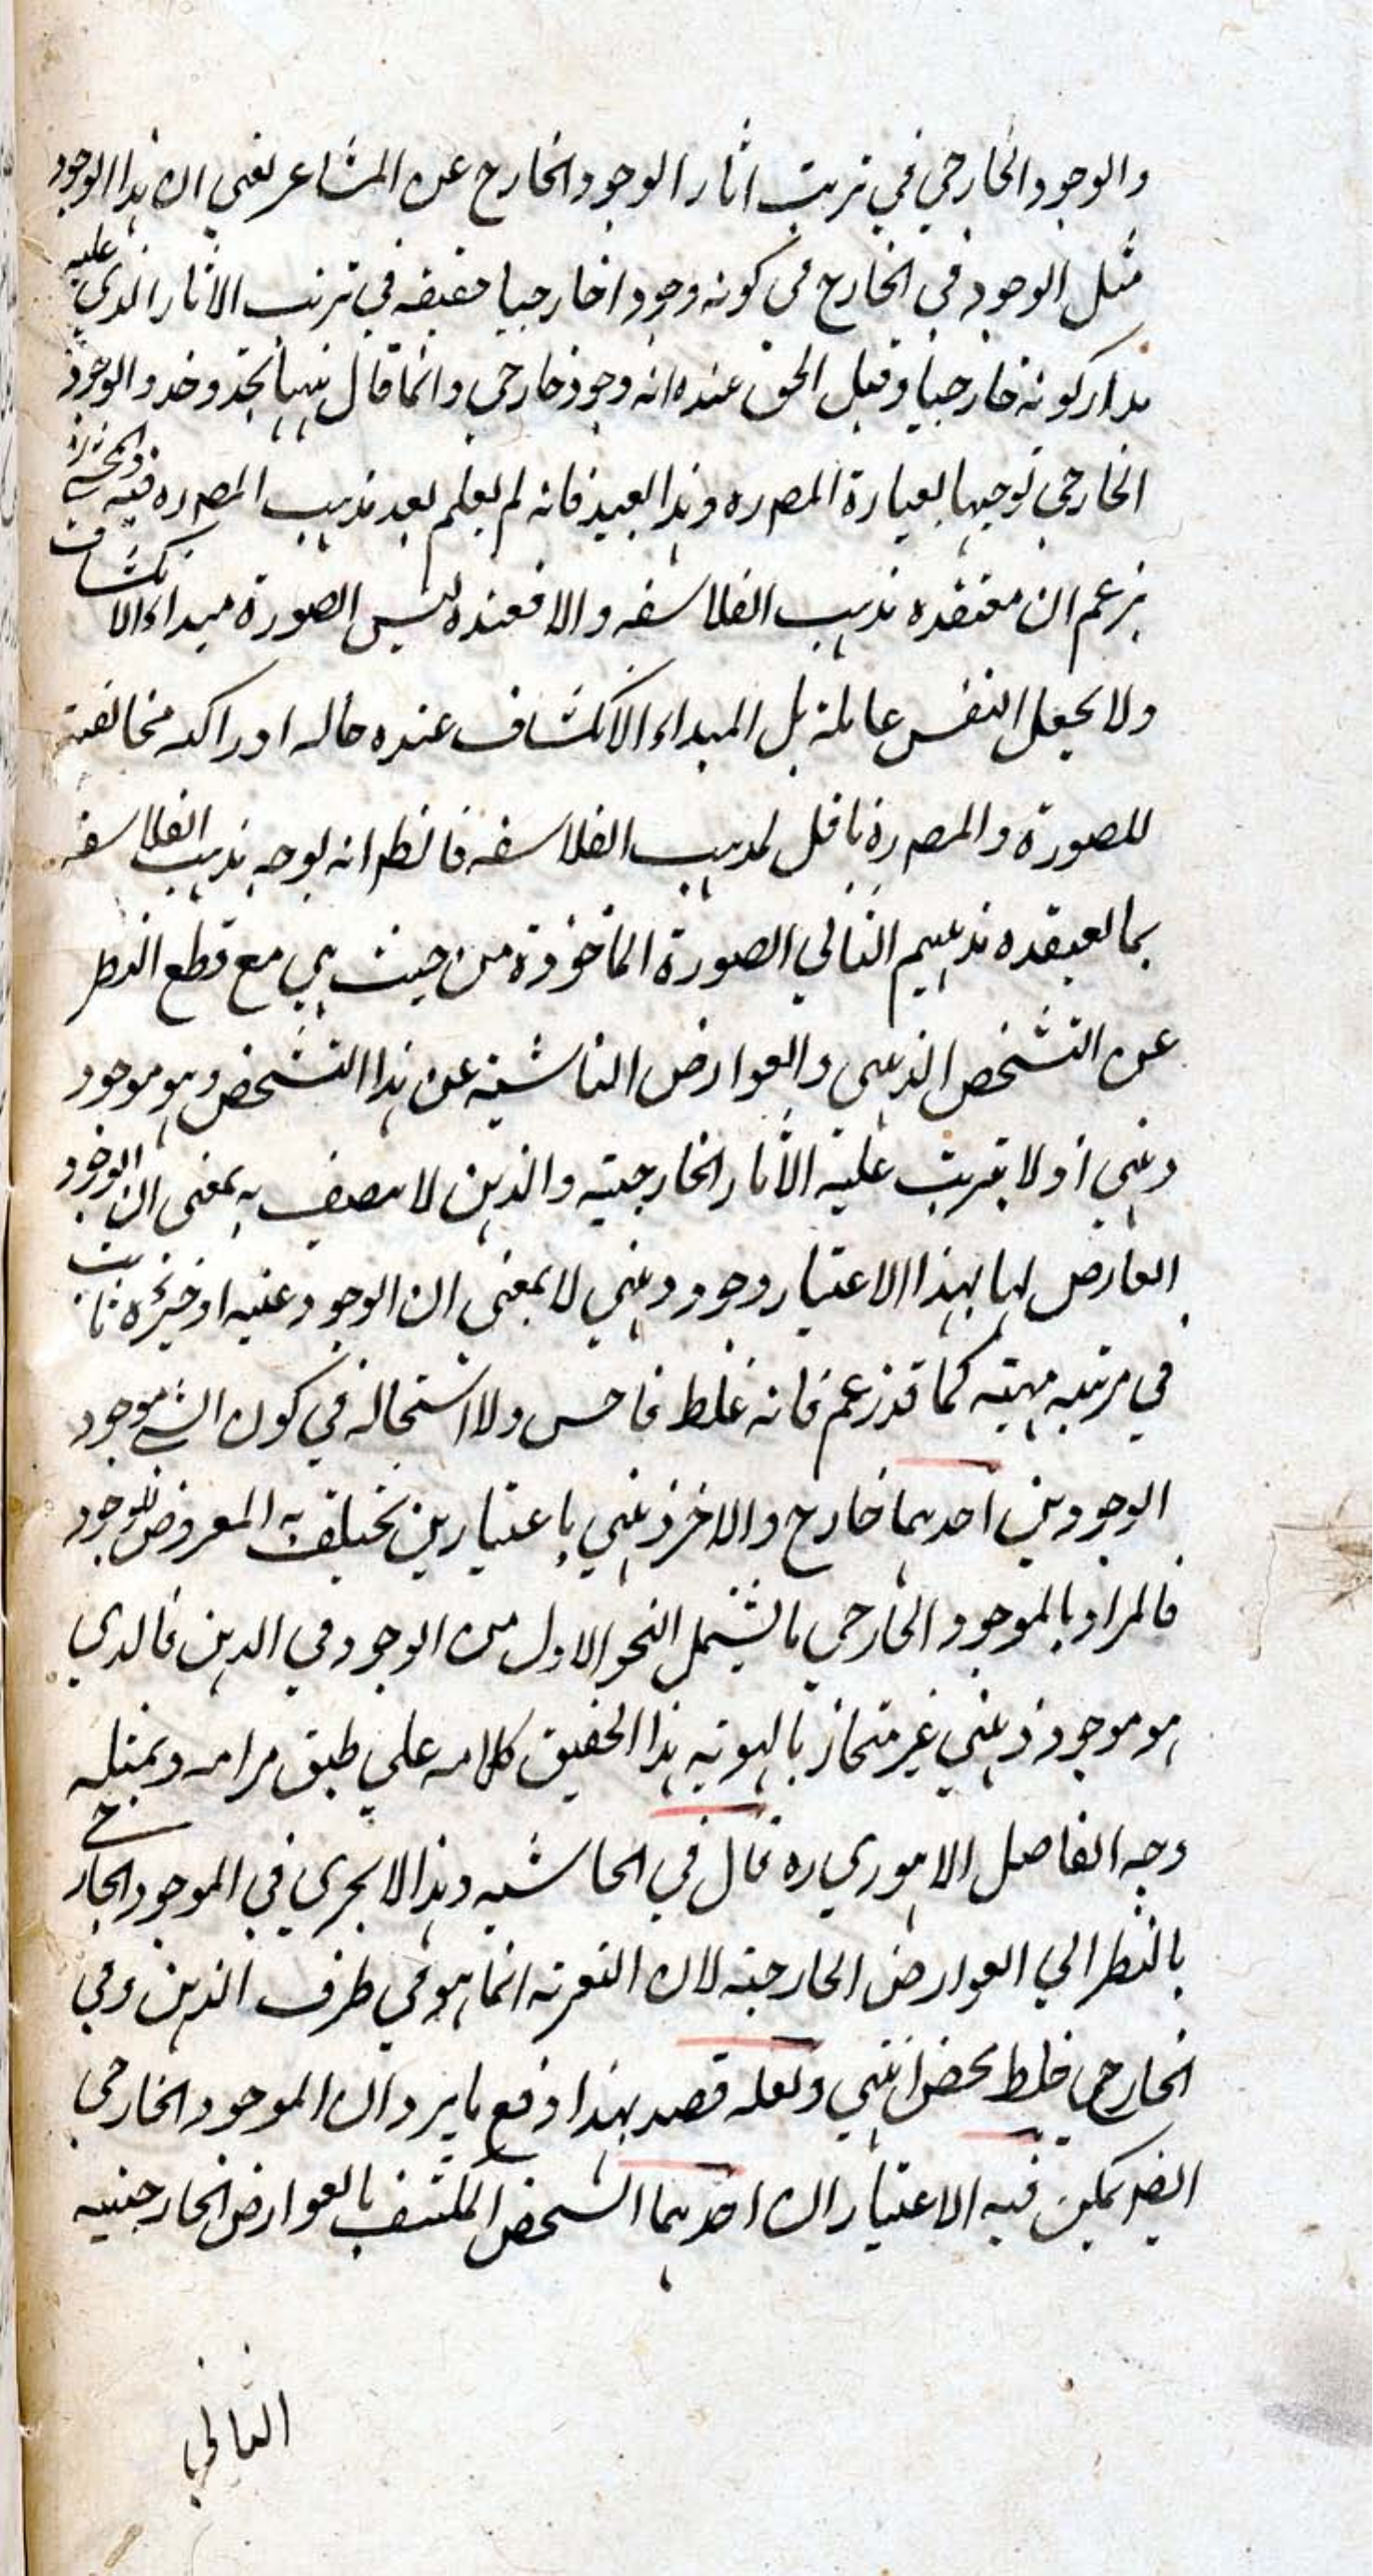 والوجود الخارجي في ترتب اثار الوجود الخارج عن المشاعر يعني ان هذا الوجود
مثل الوجود في الخارج في كونه وجودا خارجيا حقيقه في ترتب الاثار الذي عليه
مدار كونه خارجيا وقيل الحق عنده انه وجود خارجي وانما قال يحذو حذو الوجود
الخارجي توجيها لعبارة المصر ره وهذا بعيد فانه لم يعلم بعد مذهب المصر ره فيه
يزعم ان معتقده مذهب الفلاسفه والا فعنده ليس الصورة مبداء الانكشاف
ولا يجعل النفس عالمة بل المبداء الانكشاف عنده حاله ادراكيه مخالفته
للصورة والمصر ره ناقل لمذهب الفلاسفه فالظر انه يوجه مذهب الفلاسفه
بما يعتقده مذهبهم الثاني الصورة الماخوذة من حيث هي مع قطع النظر
عن التشخص الذهني والعوارض الناشئية عن هذا التشخص وهو موجود
ذهني اذ لا يترتب عليه الاثار الخارجيته والذهن لا يتصف به بمعنى ان الوجود
العارض لها بهذا الاعتبار وجود ذهني لا بمعنى ان الوجود عينه او جزئه ثابت
في مرتبه مهيته كما قد زعم فانه غلط فاحش ولا استحاله في كون الشي موجود
الوجودين احدهما خارج والاخر ذهني باعتبارين يختلف به المعروض للوجود
فالمراد بالموجود الخارجي ما يشمل النحو الاول من الوجود في الذهن فالذي
هو موجود ذهني غير متحاز بالهويه هذا الحقيق كلامه علي طبق مرامه وبمثله
وجه الفاضل الاهوري ره قال في الحاشيه وهذا لا يجري في الموجود الخارجي
بالنظر الي العوارض الخارجيه لان التعريه انما هو في ظرف الذهن وفي
الخارجي خلط محض انتهي ولعله قصد بهذا دفع ما يرد ان الموجود الخارجي
ايضر يمكن فيه الاعتباران احدهما الشخص المكتنف بالعوارض الخارجييه
الثاني